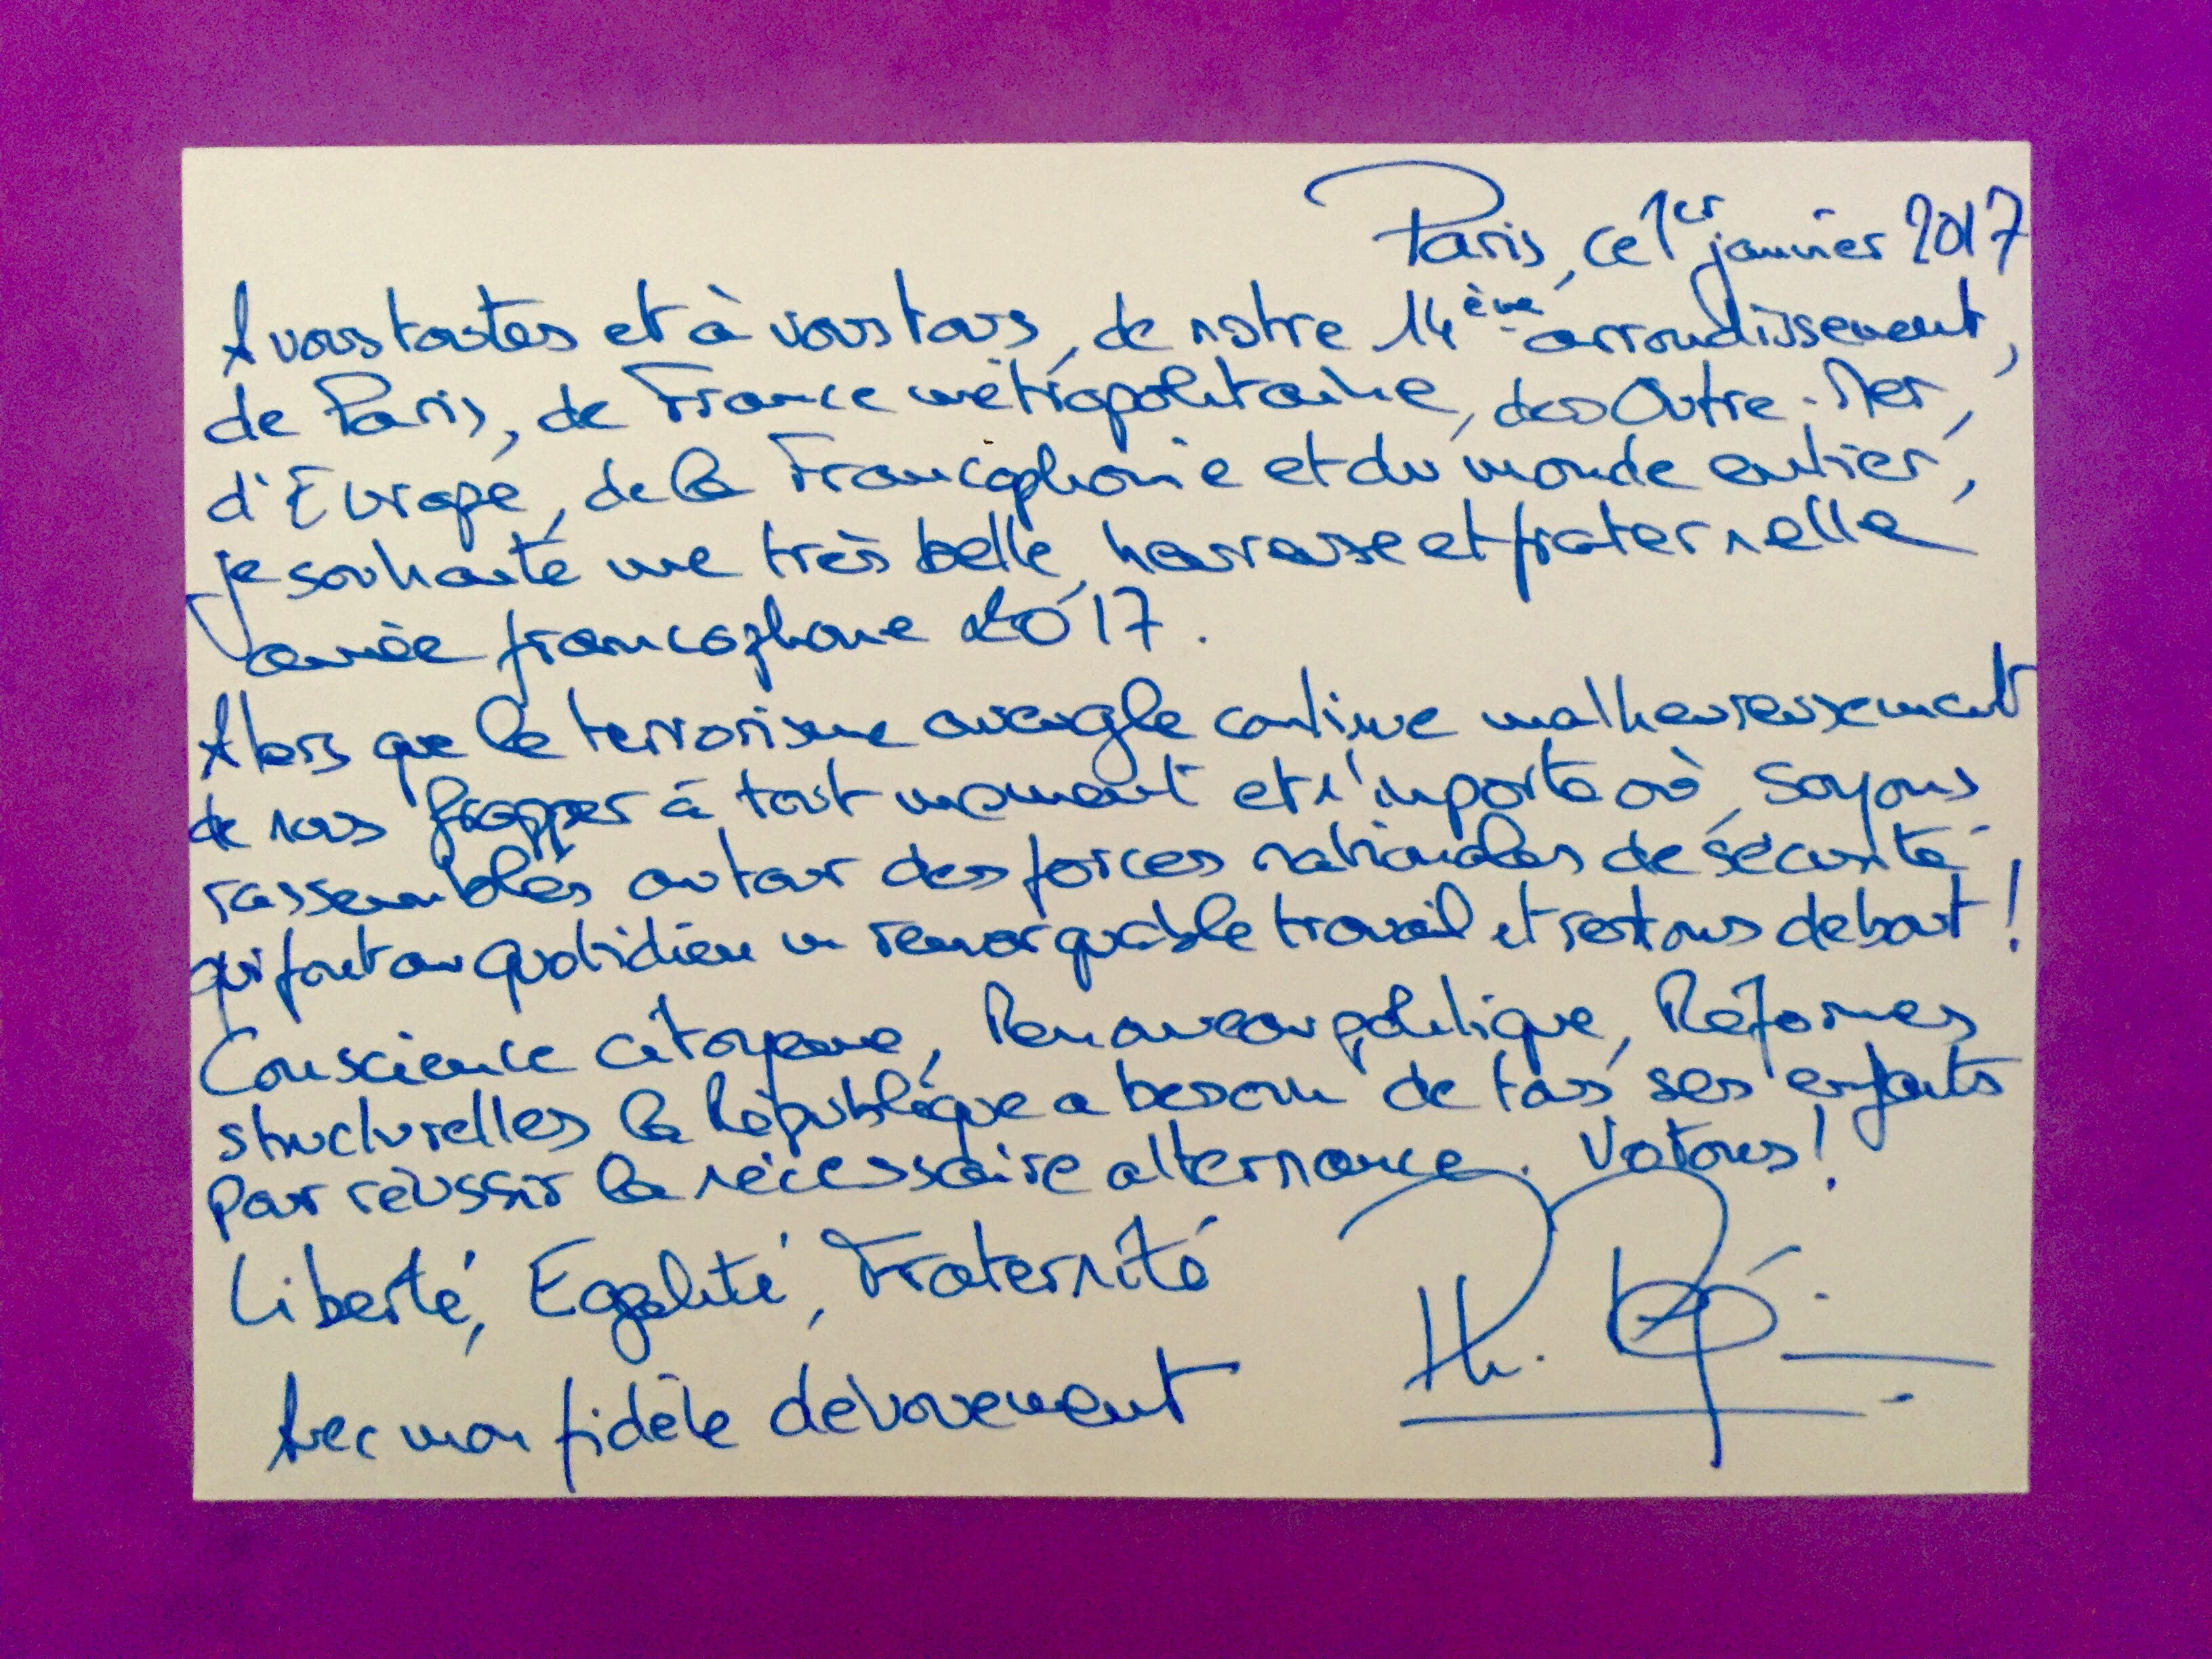 Paris, ce 1er janvier 2017
A vous toutes et à vous tous, de notre 14ème arrondissement,
de Paris, de France métropolitaine, des Outre-Mer,
d'Europe, de la Francophonie et du monde entier,
je souhaite une très belle, heureuse et fraternelle
année francophone 2017.
Alors que le terrorisme aveugle continue malheureusement
de nous frapper à tout moment et n'importe où, soyons
rassemblés autour des forces nationales de sécurité
qui font au quotidien un remarquable travail et restons debout !
Conscience citoyenne, Renouveau politique, Réformes
structurelles la République a besoin de tous ses enfants
pour réussir la nécessaire alternance. Votons !
Liberté, Egalité, Fraternité
Avec mon fidèle dévouement
Ph.